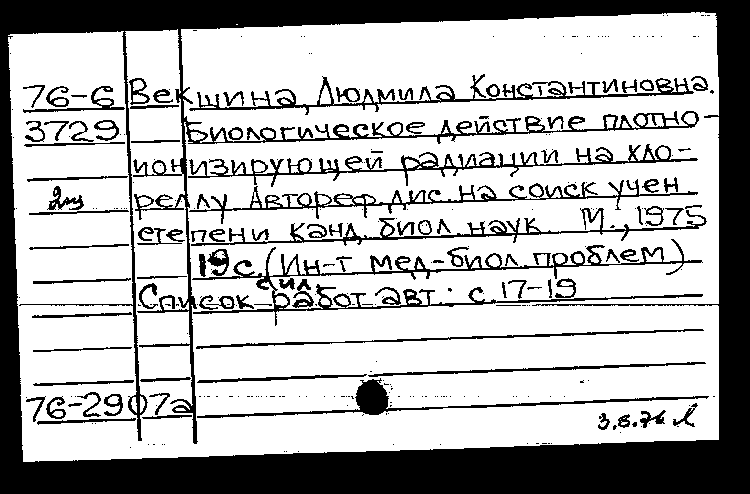 76-6 Векшина, Людмила Константиновна.
3729 Биологическое действие плотно-
ионизирующей радиации на хло-
реллу Автореф. дис. на соиск учен
степени канд. биол. наук. М., 1975
19 с. (Ин-т мед.-биол. проблем)
с ил.
Список работ авт.: с. 17-19
76-2907а
3.8.76